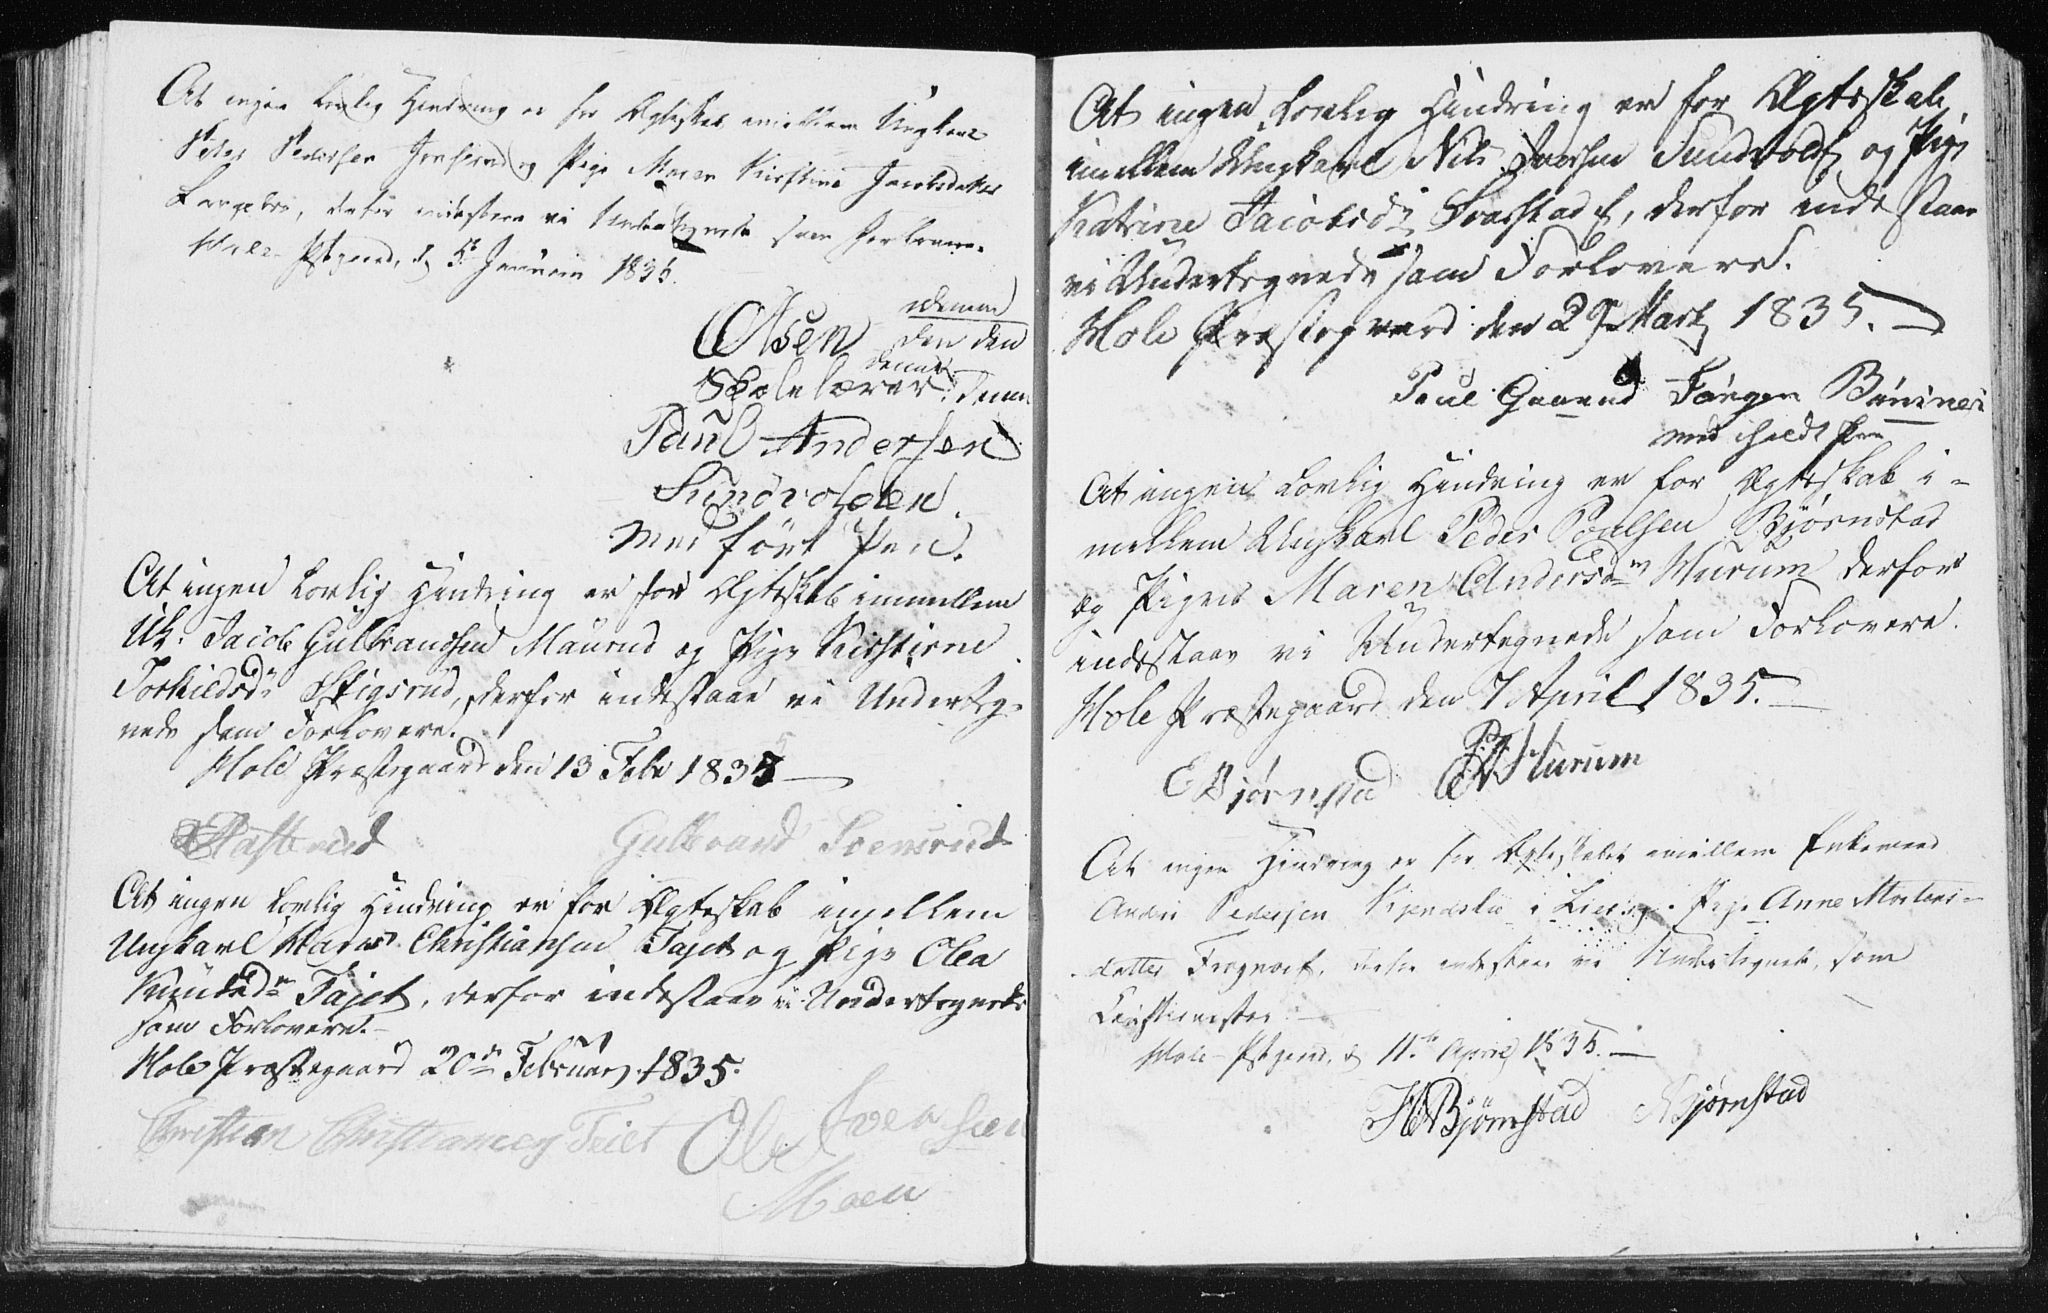 At ingen lovlig Hindring er for Ægteskab imellem Ungkarl
Peder Pedersen og Pige Maren Kirstine Jacobsdatter
derfor indestaae vi Undertegnede som Forlovere.
Hole Pstgaard, d 5te Januari 1835.
Olsen
Skolelærer
Paul Andersen
Sundvolden.
Med ført Pen.
At ingen Lovlig Hindring er for Ægteskab immellem
Uk: Jacob Gulbrandsen Maurud og Pige Kirstine
Torkildsdr Stigsrud, derfor indestaae vi Underteg-
nede som Forlovere.
Hole Præstegaard den 13 Febr 1835
Gulbrand
At ingen Lovlig Hindring er for Ægteskab imellem
Ungkarl Hans Christiansen Fajet og Pige Olea
Knudsdr Fajet, derfor indestaae vi Undertegnede
som Forlovere.
Hole Præstegaard 20de Februar 1835.
Christian Christiansen Feiet Ole Iversen
Moen
At ingen Lovlig Hindring er for Ægteskab
imellem Ungkarl Nils Iversen Sundvold og Pige
Katrine Jacobsdr Svarstad, derfor indestaae
vi Undertegnede som Forlovere.
Hole Præstegaard den 29 Marts 1835.
Poul Gaarud Jørgen
med holdt Pen
At ingen Lovlig Hindring er for Ægteskab i-
mellem Ungkarl Peder Poulsen Bjørnstad
og Pigen Maren Andersdr Murum derfor
indestaae vi Undertegnede som Forlovere.
Hole Præstegaard den 7 April 1835.
E Bjørnstad Murum
At ingen Hindring er for Ægteskabet imellem Enkemand
Anders Pedersen i Lier og Pige Anne Mortens-
datter Frognør, derfor indestaae vi Undertegnede, som
Hole Pstgaard, d 11te April 1835.
H Bjørnstad Bjørnstad